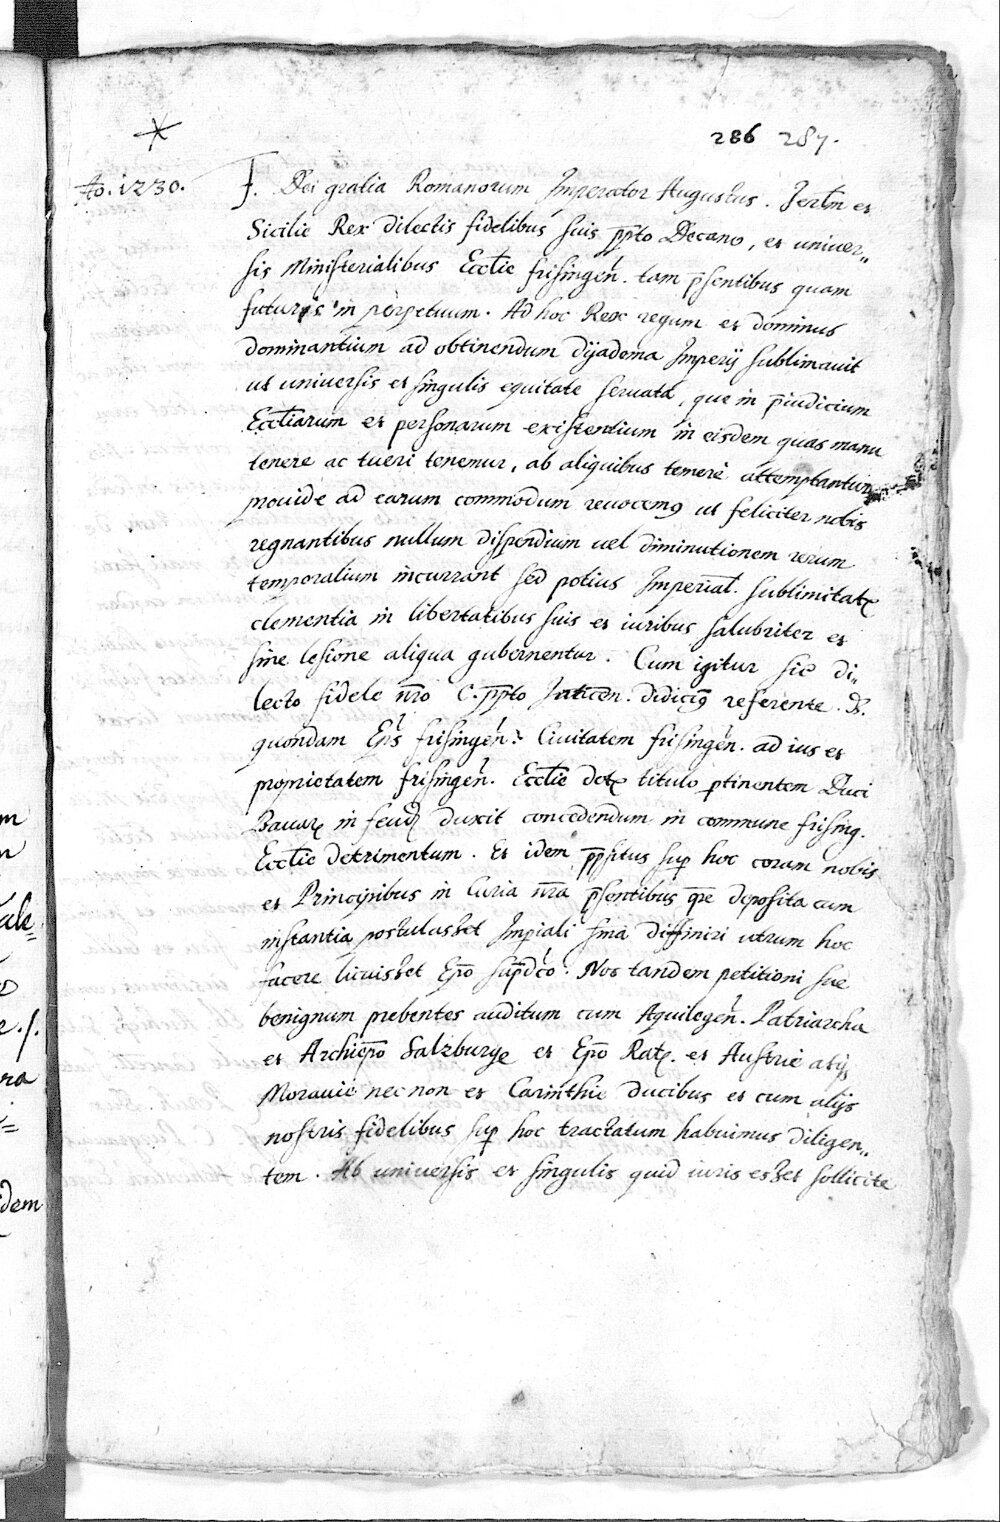 286 287.
Ao. 1230.
F. Dei gratia Romanorum Imperator Augustus. Jerlm et
Sicilie Rex dilectis fidelibus suis ppto Decano, et univer„
sis Ministerialibus Ecclie frisingen. tam psentibus quam
futuris in perpetuum. Ad hoc Rex regum et dominus
dominantium ad obtinendum dyadema Imperij sublimavit
ut universis et singulis equitate servata, que in piudicium
Eccliarum et personarum existentium in eisdem quas manu
tenere ac tueri tenemur, ab aliquibus temere attemptantur
provide ad earum commodum revocemus ut feliciter nobis
regnantibus nullum dispendium vel diminutionem rerum
temporalium incurrant sed potius Imperial. sublimitatis
clementia in libertatibus suis et iuribus salubriter et
sine lesione aliqua gubernentur. Cum igitur sic di„
lecto fidele nro C. ppto Inticen. didicimus referente. G.
quondam Eps frisingen. Civitatem frisingen. ad ius et
proprietatem frisingen. Ecclie dotis titulo ptinentem Duci
Bavarie in feudum duxit concedendum in commune frising.
Ecclie detrimentum. Et idem ppsitus sup hoc coram nobis
et Principibus in Curia nra psentibus qre deposita cum
instantia postulasset Impiali sma diffiniri utrum hoc
facere licuisset Epo supdco. Nos tandem petitioni sue
benignum prebentes auditum cum Aquilegen. Patriarcha
et Archiepo Salzburge et Epo Rat. et Austrie atq
Moravie nec non et Carinthie ducibus et cum alijs
nostris fidelibus sup hoc tractatum habuimus diligen„
tem. Ab universis et singulis quid iuris esset sollicite